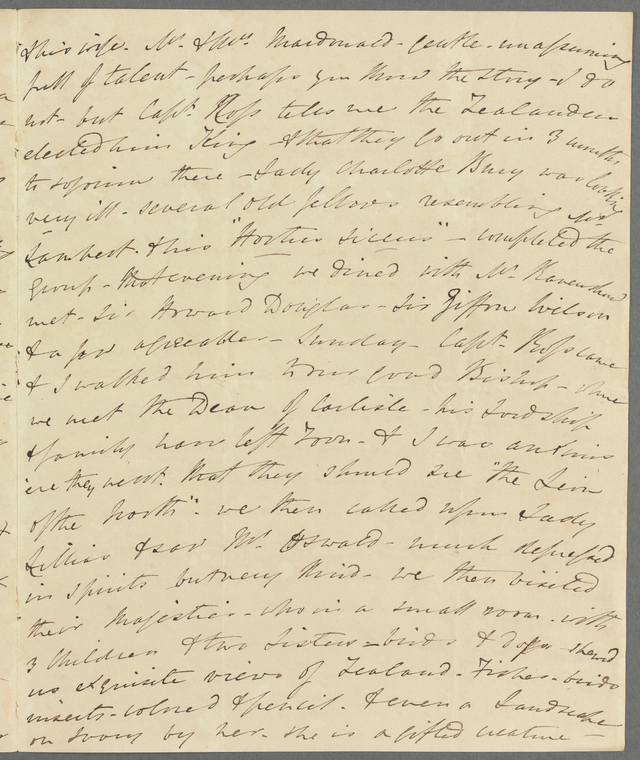 & his wife - Mr. & Mrs. Macdonald - gentle - unassuming
full of talent - perhaps you know the story - I do
not - but Captn. Ross tells me the Zealanders
elected him King - & that they go out in 3 months
to sojourn there - Lady Charlotte Bury was looking
very ill - several old fellows resembling Mr
Lambert & his "Hortus Siccus" - completed the
Group - that evening we dined with Mr. Ravenshaw
met - Sir Howard Douglas - Sir Giffin Wilson
& a few agreeables - Sunday - Captn. Ross came
& I walked him to our good Bishop - where
we met the Dean of Carlisle - his Lordship
& family now left Town - & I was anxious
ere they went. that they should see "the Lion
of the North". we then called upon Lady
Lillias & saw Mr. Oswald - much depressed
in spirits but very kind - we then visited
their Majesties - who in a small room - with
3 Children & two Sisters - birds & dogs - shewed
us exquisite views of Zealand - Fishes - birds
insects - colored & pencil - & even a Landscape
on ivory by her - she is a gifted creature -